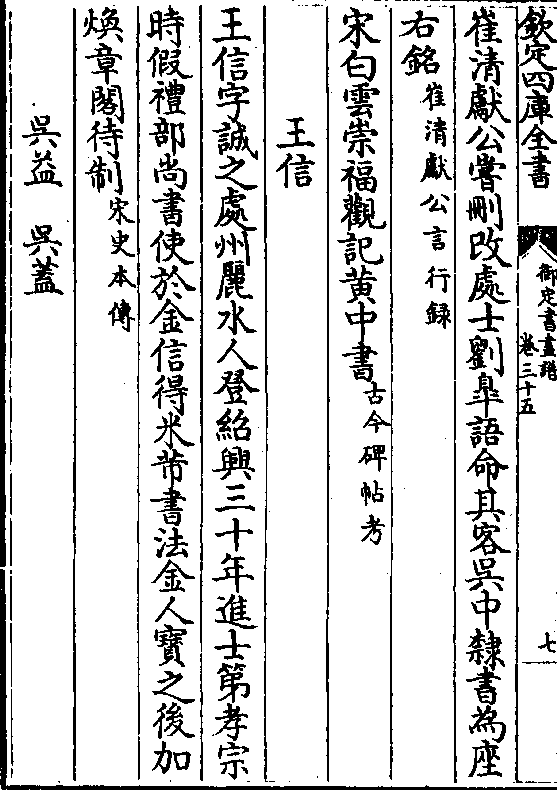 欽定四庫全書
御定書畫譜
卷三十五
七
崔清獻公嘗刪改處士劉皐語命其客吳中隸書為座
右銘崔清獻公言行録
宋白雲崇福觀記黄中書古今碑帖考
王信
王信字誠之處州麗水人登紹興三十年進士第孝宗
時假禮部尚書使於金信得米芾書法金人寶之後加
煥章閣待制宋史本傳
吳益 吳蓋